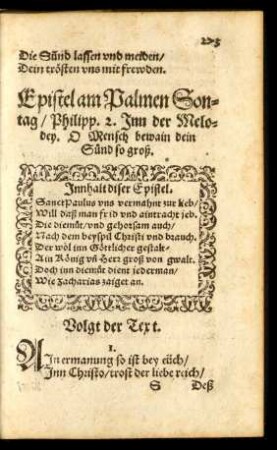 223
Die Sünd lassen vnd meiden/
Dein trösten vns mit frewden.
Epistel am Palmen Son-
tag/ Philipp. 2. Inn der Melo-
dey. O Mensch bewain dein
Sünd so groß.
Innhalt diser Epistel.
Sanct Paulus vns vermahnt zur lieb/
Will daß man frid vnd aintracht ieb.
Die diemüt/ vnd gehorsam auch/
Nach dem beyspil Christi vnd brauch.
Der wol inn Göttlicher gestalt/
Ain König vñ Herr groß von gwalt.
Doch inn diemüt dient jederman/
Wie Zacharias zaiget an.
Volgt der Text.
1.
AIn ermanung so ist bey eüch/
Inn Christo/ trost der liebe reich/
S Deß